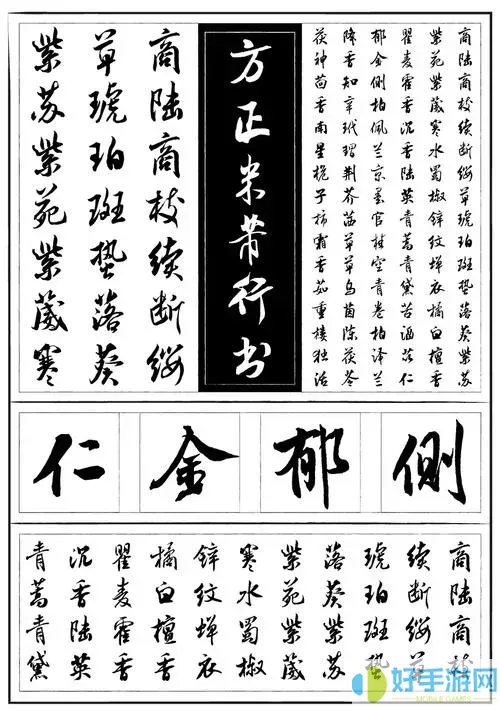 商陆商枝续断绶草琥珀斑蛰落葵紫苏
紫苑紫葳寒水蜀椒锌纹蝉衣橘白檀香
瞿麦藿香沉香陆英青蒿青黛苦酒苡仁
郁金侧柏佩兰京墨官桂空青卷柏泽兰
降香知辛玳瑁荆芥茜草草乌茵陈茯苓
茯神茴香南星栀子柿霜香茹重楼独活
方正米芾行书
商陆商枝续断绶
草琥珀斑蛰落葵
紫苏紫苑紫葳寒
侧郁金仁
商陆商枝
续断绶草
琥珀斑蛰
落葵紫苏
紫苑紫葳
寒水蜀椒
锌纹蝉衣
橘白檀香
瞿麦藿香
沉香陆英
青蒿青黛
好手游网
MOBILE GAMES